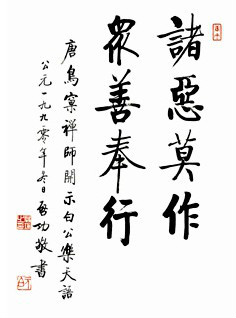 諸惡莫作
眾善奉行
唐鳥窠禪師開示白公樂天語
公元一九九〇年冬日啓功敬書